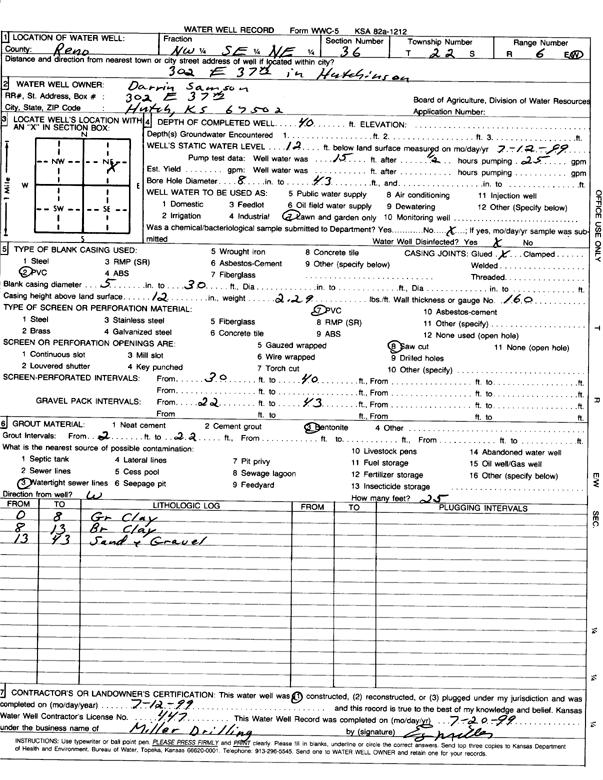 WATER WELL RECORD Form WWC-5 KSA 82a-1212
1 LOCATION OF WATER WELL: Fraction Section Number Township Number Range Number
County: Reno NW ¼ SE ¼ NE ¼ 36 T 22 S R 6 E/W
Distance and direction from nearest town or city street address of well if located within city?
302 E 37th in Hutchinson
2 WATER WELL OWNER: Darrin Samson
RR#, St. Address, Box # : 302 E 37th Board of Agriculture, Division of Water Resources
City, State, ZIP Code : Hutch, KS 67502 Application Number:
3 LOCATE WELL'S LOCATION WITH AN "X" IN SECTION BOX:
N
NW NE
W E
SW SE
S
1 Mile
X
4 DEPTH OF COMPLETED WELL 40 ft. ELEVATION:
Depth(s) Groundwater Encountered 1. ft. 2. ft. 3. ft.
WELL'S STATIC WATER LEVEL 12 ft. below land surface measured on mo/day/yr 7-12-99
Pump test data: Well water was 15 ft. after ½ hours pumping 25 gpm
Est. Yield gpm: Well water was ft. after hours pumping gpm
Bore Hole Diameter 8 in. to 43 ft., and in. to ft.
WELL WATER TO BE USED AS: 5 Public water supply 8 Air conditioning 11 Injection well
1 Domestic 3 Feedlot 6 Oil field water supply 9 Dewatering 12 Other (Specify below)
2 Irrigation 4 Industrial 7 Lawn and garden only 10 Monitoring well
Was a chemical/bacteriological sample submitted to Department? Yes No X; If yes, mo/day/yr sample was submitted
Water Well Disinfected? Yes X No
5 TYPE OF BLANK CASING USED: 5 Wrought iron 8 Concrete tile CASING JOINTS: Glued X Clamped
1 Steel 3 RMP (SR) 6 Asbestos-Cement 9 Other (specify below) Welded
2 PVC 4 ABS 7 Fiberglass Threaded
Blank casing diameter 5 in. to 30 ft., Dia in. to ft., Dia in. to ft.
Casing height above land surface 12 in., weight 2.29 lbs./ft. Wall thickness or gauge No. 160
TYPE OF SCREEN OR PERFORATION MATERIAL: 7 PVC 10 Asbestos-cement
1 Steel 3 Stainless steel 5 Fiberglass 8 RMP (SR) 11 Other (specify)
2 Brass 4 Galvanized steel 6 Concrete tile 9 ABS 12 None used (open hole)
SCREEN OR PERFORATION OPENINGS ARE: 5 Gauzed wrapped 8 Saw cut 11 None (open hole)
1 Continuous slot 3 Mill slot 6 Wire wrapped 9 Drilled holes
2 Louvered shutter 4 Key punched 7 Torch cut 10 Other (specify)
SCREEN-PERFORATED INTERVALS: From 30 ft. to 40 ft., From ft. to ft.
From ft. to ft., From ft. to ft.
GRAVEL PACK INTERVALS: From 22 ft. to 43 ft., From ft. to ft.
From ft. to ft., From ft. to ft.
6 GROUT MATERIAL: 1 Neat cement 2 Cement grout 3 Bentonite 4 Other
Grout Intervals: From 2 ft. to 22 ft., From ft. to ft., From ft. to ft.
What is the nearest source of possible contamination: 10 Livestock pens 14 Abandoned water well
1 Septic tank 4 Lateral lines 7 Pit privy 11 Fuel storage 15 Oil well/Gas well
2 Sewer lines 5 Cess pool 8 Sewage lagoon 12 Fertilizer storage 16 Other (specify below)
3 Watertight sewer lines 6 Seepage pit 9 Feedyard 13 Insecticide storage
Direction from well? W How many feet? 25
FROM TO LITHOLOGIC LOG FROM TO PLUGGING INTERVALS
0 8 Gr Clay
8 13 Br Clay
13 43 Sand & Gravel
7 CONTRACTOR'S OR LANDOWNER'S CERTIFICATION: This water well was (1) constructed, (2) reconstructed, or (3) plugged under my jurisdiction and was
completed on (mo/day/year) 7-12-99 and this record is true to the best of my knowledge and belief. Kansas
Water Well Contractor's License No. 447 This Water Well Record was completed on (mo/day/yr) 7-20-99
under the business name of Miller Drilling by (signature)
INSTRUCTIONS: Use typewriter or ball point pen. PLEASE PRESS FIRMLY and PRINT clearly. Please fill in blanks, underline or circle the correct answers. Send top three copies to Kansas Department
of Health and Environment, Bureau of Water, Topeka, Kansas 66620-0001. Telephone: 913-296-5545. Send one to WATER WELL OWNER and retain one for your records.
OFFICE USE ONLY
T
R
EW
SEC.
¼
¼
¼